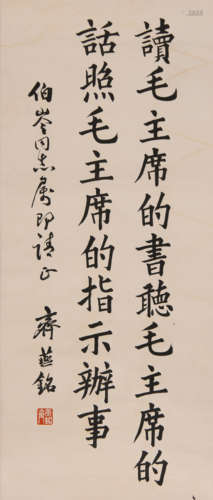 讀毛主席的書聽毛主席的
話照毛主席的指示辦事
伯岑同志屬即請正
齊燕銘